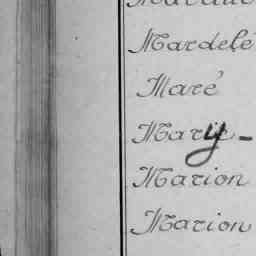 Mardelé
Maré
Mary -
Marion
Marion